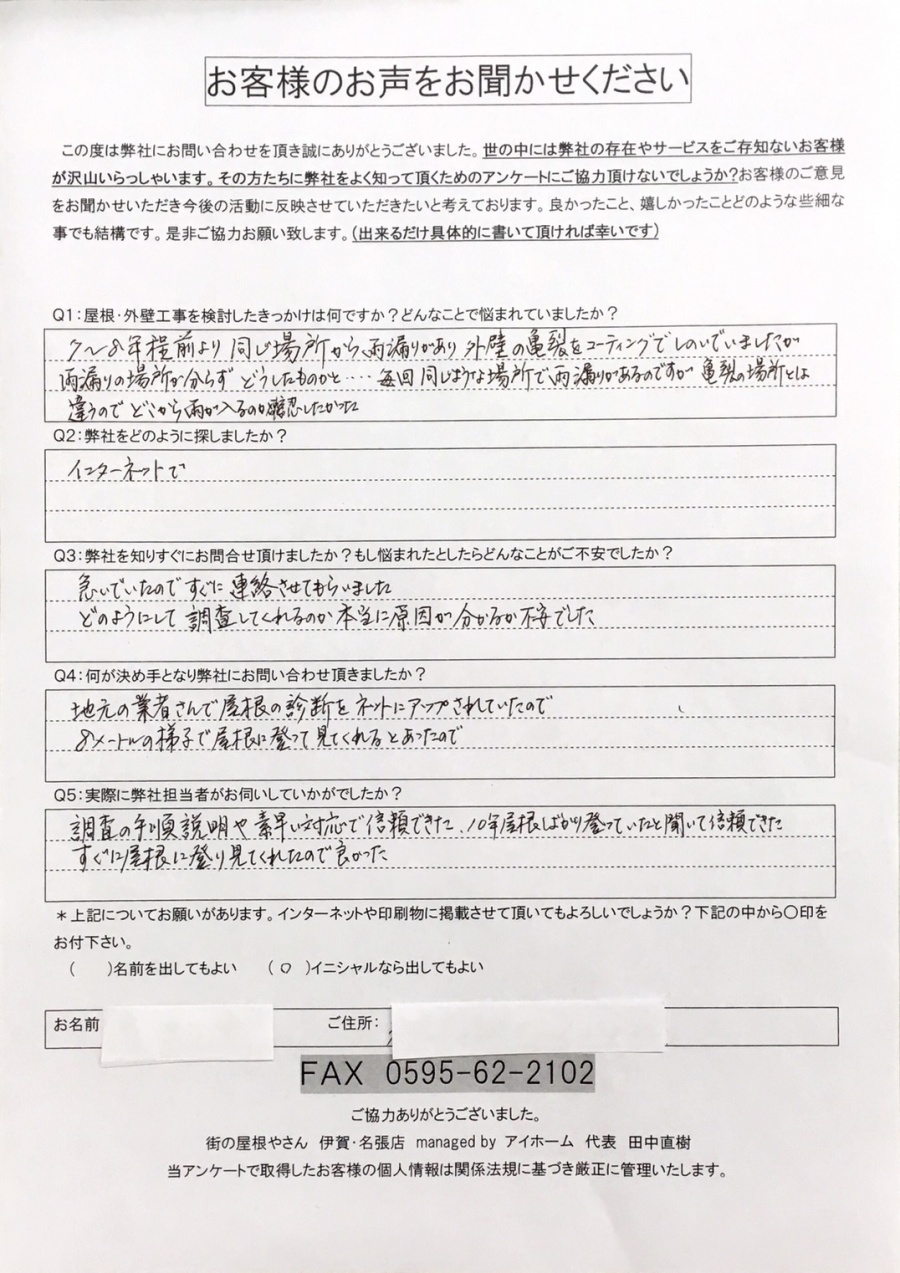 お客様のお声をお聞かせください
この度は弊社にお問い合わせを頂き誠にありがとうございました。世の中には弊社の存在やサービスをご存知ないお客様
が沢山いらっしゃいます。その方たちに弊社をよく知って頂くためのアンケートにご協力頂けないでしょうか？お客様のご意見
をお聞かせいただき今後の活動に反映させていただきたいと考えております。良かったこと、嬉しかったことどのような些細な
事でも結構です。是非ご協力お願い致します。（出来るだけ具体的に書いて頂ければ幸いです）
Q1：屋根・外壁工事を検討したきっかけは何ですか？どんなことで悩まれていましたか？
7〜8年程前より同じ場所から雨漏りがあり外壁の亀裂をコーティングでしのいでいましたが
雨漏りの場所が分らずどうしたものかと‥‥毎回同じような場所で雨漏りがあるのですが亀裂の場所とは
違うのでどこから雨が入るのか確認したかった
Q2：弊社をどのように探しましたか？
インターネットで
Q3：弊社を知りすぐにお問合せ頂けましたか？もし悩まれたとしたらどんなことがご不安でしたか？
急いでいたのですぐに連絡させてもらいました
どのようにして調査してくれるのか本当に原因が分かるか不安でした
Q4：何が決め手となり弊社にお問い合わせ頂きましたか？
地元の業者さんで屋根の診断をネットにアップされていたので
8メートルの様子で屋根に登って見てくれるとあったので
Q5：実際に弊社担当者がお伺いしていかがでしたか？
調査の手順説明や素早い対応で信頼できた、10年屋根しばかり登っていたと聞いて信頼できた
すぐに屋根に登り見てくれたので良かった
＊上記についてお願いがあります。インターネットや印刷物に掲載させて頂いてもよろしいでしょうか？下記の中から〇印を
お付下さい。
（　　）名前を出してもよい　（○）イニシャルなら出してもよい
お名前　ご住所：
FAX 0595-62-2102
ご協力ありがとうございました。
街の屋根やさん　伊賀・名張店　managed by アイホーム　代表　田中直樹
当アンケートで取得したお客様の個人情報は関係法規に基づき厳正に管理いたします。